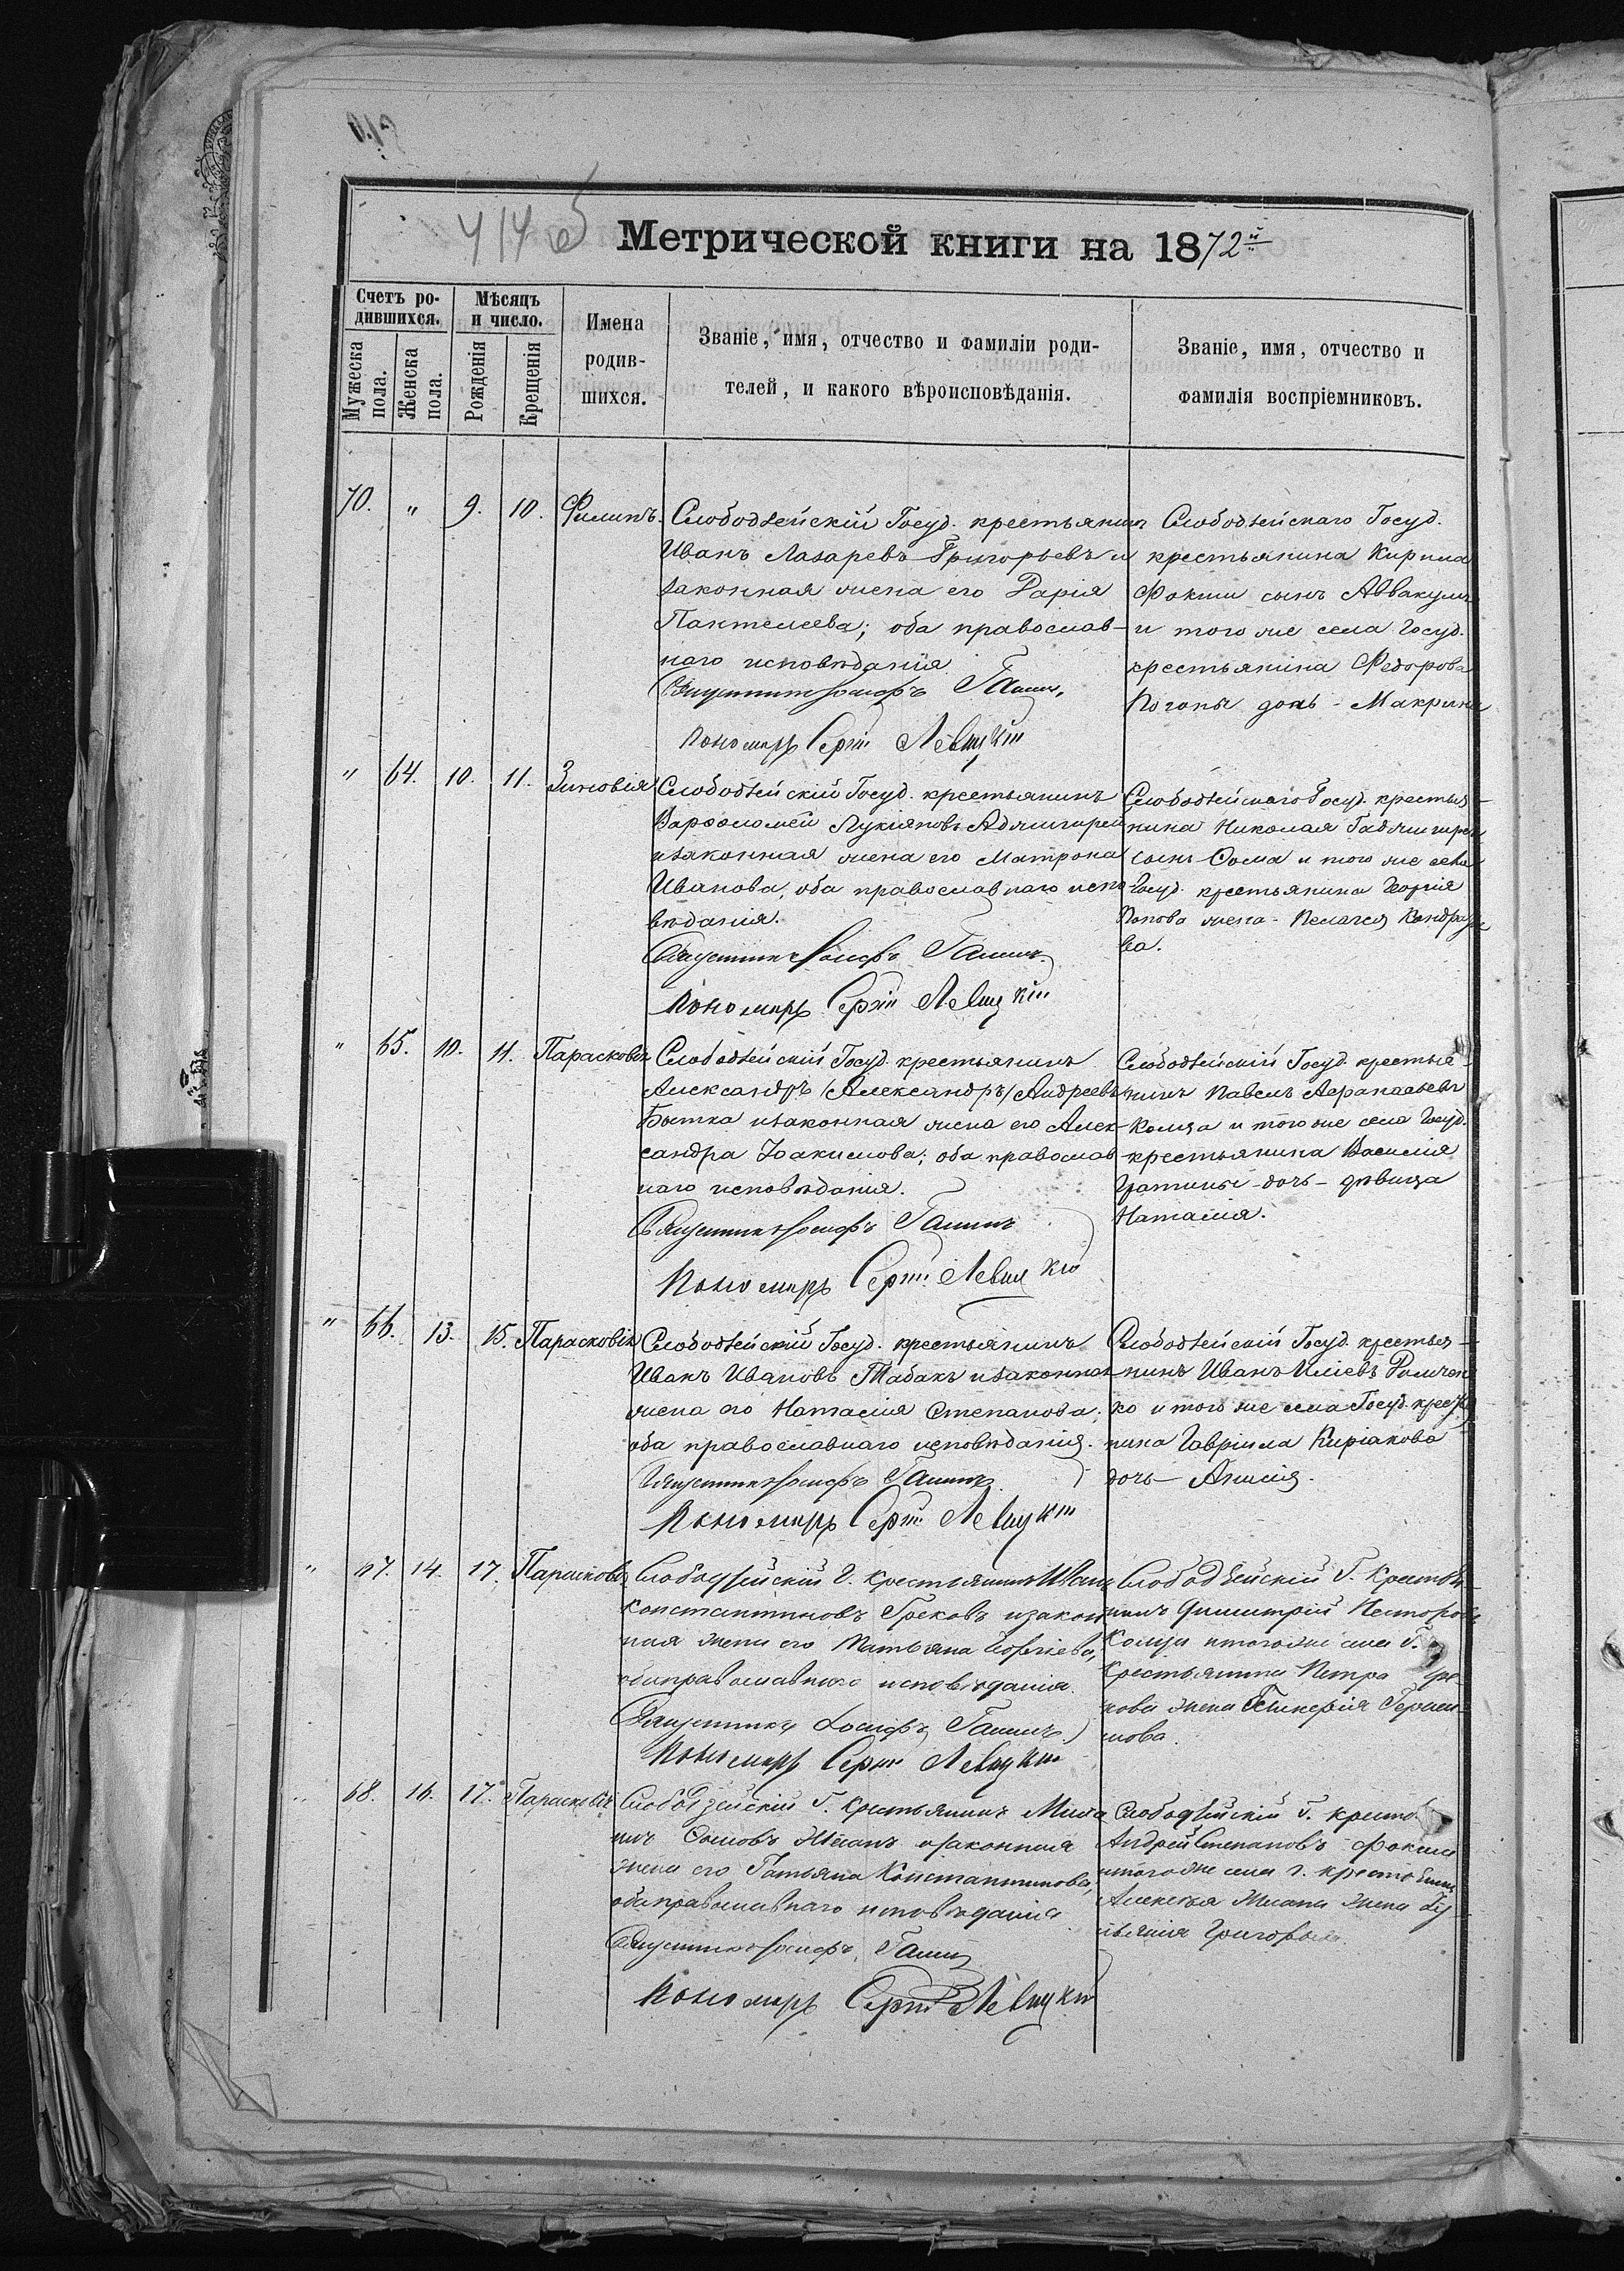 414 об
Метрической книги на 1872й
Счетъ ро-
дившихся.
Мужеска пола.
Женска пола.
Мѣсяцъ
и число.
Рожденія
Крещенія
Имена
родив-
шихся.
Званіе, имя, отчество и фамиліи роди-
телей, и какого вѣроисповѣданія.
Званіе, имя, отчество и
фамилія воспріемниковъ.
70. " 9. 10. Филипъ.
Слободзейскій Госуд. крестьянинъ
Иванъ Лазаревъ Григорьевъ и
законная жена его Дарія
Пантелеева; оба православ-
наго исповѣданія
Іосифъ Галинъ
Пономарь Сергій Левицкій
Слободзейскаго Госуд.
крестьянина Кирила
Фокши сынъ Аввакумъ
и того же села Госуд.
крестьянина Федорова
дочь - Макрина
" 64. 10. 11. Зиновія
Слободзейскій Госуд. крестьянинъ
Варфоломей Лукіяновъ
и законная жена его Матрона
Иванова, оба православнаго испо
вѣданія.
Іосифъ Галинъ
Пономарь Сергій Левицкій
Слободзейскаго Госуд. крестья-
нина Николая
сынъ Фома и того же села
Госуд. крестьянина Георгія
Попова жена - Пелагея Кондрать
ва.
" 65. 10. 11. Парасковія
Слободзейскій Госуд. крестьянинъ
Александръ /Александръ/ Андреевъ
Бытка и законная жена его Алек-
сандра Іоакимова; оба православ
наго исповѣданія.
Іосифъ Галинъ
Пономарь Сергій Левицкій
Слободзейскій Госуд. крестья-
нинъ Павелъ Афанасьевъ
Колца и того же села Госуд.
крестьянина Василія
дочь - дѣвица
Наталія.
" 66. 13. 15. Парасковія
Слободзейскій Госуд. крестьянинъ
Иванъ Ивановъ Табакъ и законная
жена его Наталія Степанова;
оба православнаго исповѣданія.
Іосифъ Галинъ
Пономарь Сергій Левицкій
Слободзейскій Госуд. крестья-
нинъ Иванъ Иліевъ
ко и того же села Госуд. крестья
нина Гавріила Киріакова
дочь - Анисія.
" 67. 14. 17. Парасковія
Слободзейскій Г. крестьянинъ Иванъ
Константиновъ Грековъ и закон
ная жена его Татьяна Георгіева,
оба православнаго исповѣданія.
Іосифъ Галинъ
Пономарь Сергій Левицкій
Слободзейскій Г. крестья-
нинъ Димитрій Несторовъ
Колца и того же села Г.
крестьянина Петра Гре-
кова жена Гликерія Гераси-
мова.
" 68. 16. 17. Парасковія
Слободзейскій Г. крестьянинъ
Фомовъ Жіланъ и законная
жена его Татьяна Константинова,
оба православнаго исповѣданія
Іосифъ Галинъ
Пономарь Сергій Левицкій
Слободзейскій Г. крестья.
Андрей Степановъ Фокша
и того же села Г. крестьянина
Алексѣя жена
Григорьева.